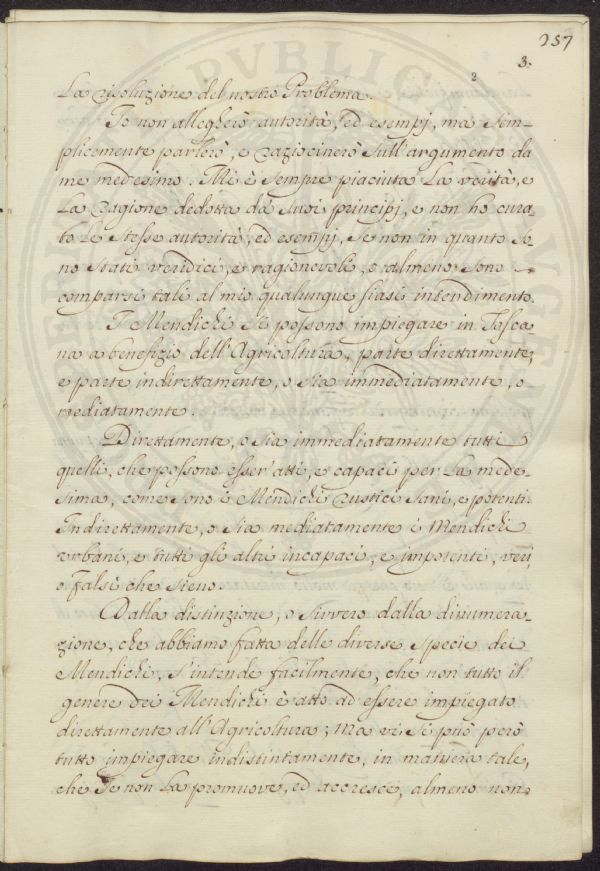 257
3.
2
La risoluzione del nostro Problema.
Io non allegherò autorità, ed esempj, ma sem-
plicemente parlerò, e raziocinerò sull'argumento da
me medesimo. Mi è sempre piaciuta la verità, e
la ragione dedotta da suoi principj, e non ho cura-
to le stesse autorità, ed esempj, se non in quanto so-
no stati veridici, e ragionevoli, o almeno sono
comparsi tali al mio qualunque siasi intendimento.
I Mendichi si possono impiegare in Tosca
na a benefizio dell'Agricoltura, parte direttamente,
e parte indirettamente, o sia immediatamente, o
mediatamente.
Direttamente, o sia immediatamente tutti
quelli, che possono esser'atti, e capaci per la mede-
sima, come sono i Mendichi rustici sani, e potenti.
Indirettamente, o sia mediatamente i Mendichi
urbani, e tutti gli altri incapaci, e impotenti, veri
o falsi che sieno.
Dalla distinzione, o sivvero dalla dinumera-
zione, che abbiamo fatta delle diverse specie dei
Mendichi, s'intende facilmente, che non tutto il
genere dei Mendichi è atto ad essere impiegato
direttamente all'Agricoltura; ma vi si può però
tutto impiegare indistintamente in maniera tale,
che se non la promuove, ed accresce, almeno non